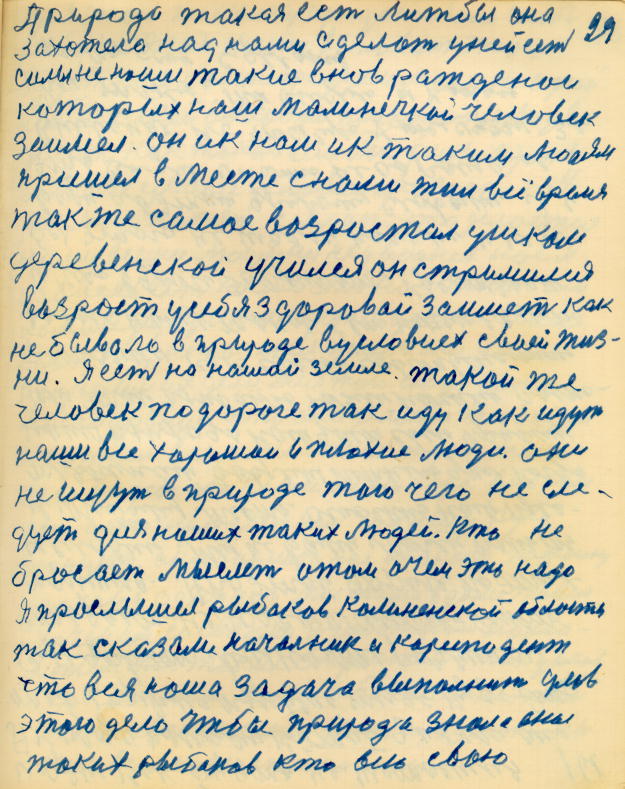 Природа такая ест литбы она 29
захотела над нами сделат уней ест
силы не наши такие внов ражденои
которых наш малинечкой человек
заимел. он ик нам ик таким людям
пришел в месте снами жил всё время
так же самое возростал ушколи
деревенской учился он стримился
возрост уcебя здоровай заимет как
не бывало в природе вусловиех своей жиз-
ни. Я ест на нашай земле. такой же
человек по дороге так иду как идут
наши все харошаи и плохие люди. они
не ищут в природе того чего не сле-
дует для наших таких людей. Кто не
бросает мыслет отом очем это надо
Я прослышел рыбаков Калиненской область
так сказали началник и кареподент
что вся наша задача выполнит
этого дело чтбы природа знала
таких рыбаков кто всю свою